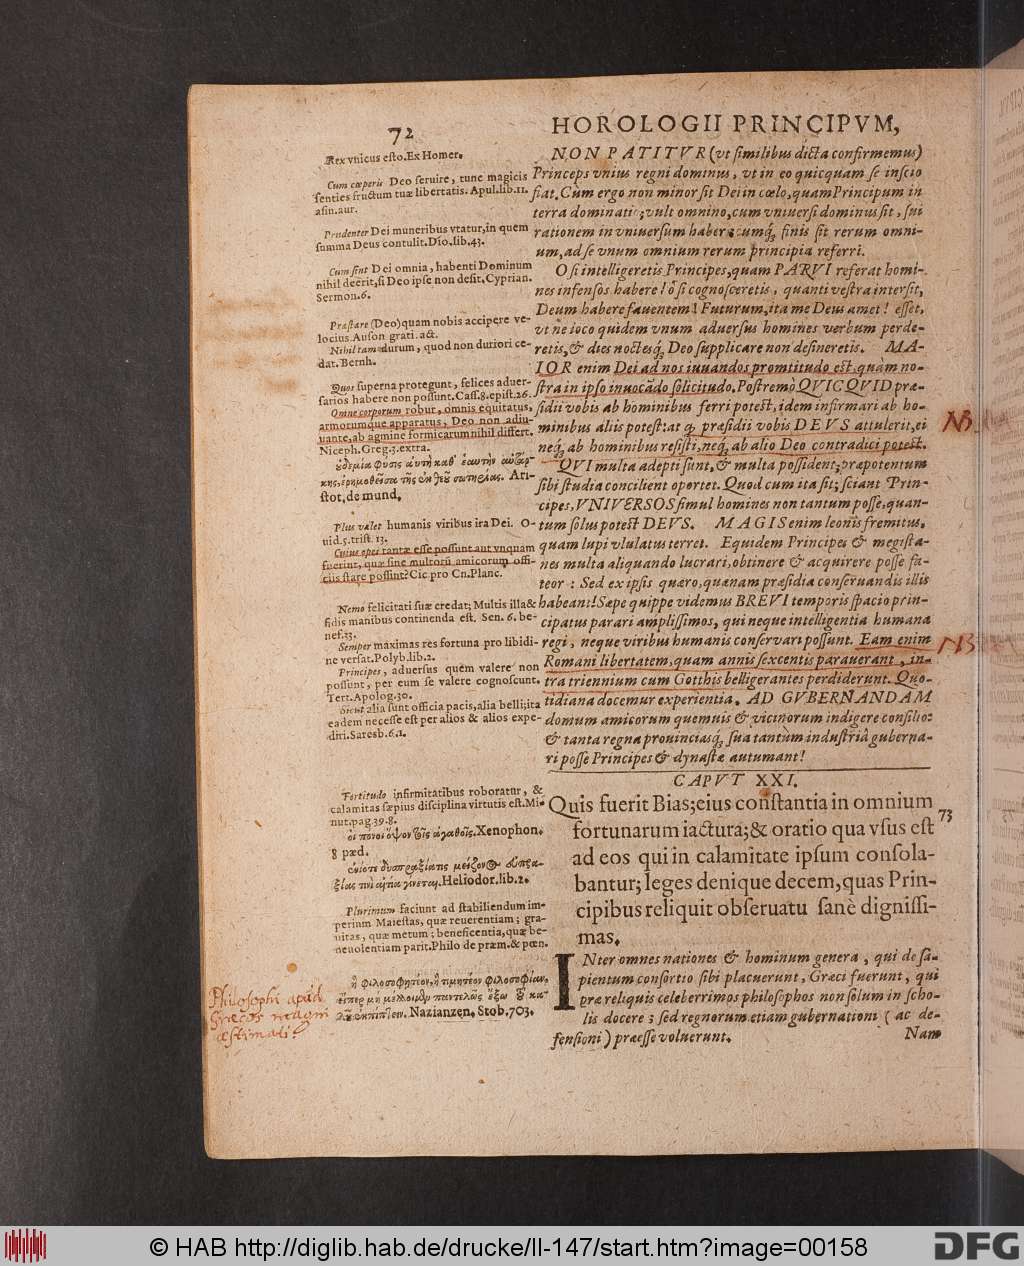 72
HOROLOGII PRINCIPVM,
Rex vnicus esto. Ex Homer.
Cum cœperis Deo seruire, tunc magicis
senties fructum tuæ libertatis. Apul. lib. 11.
asin. aur.
Prudenter Dei muneribus vtatur, in quem
summa Deus contulit. Dio. lib. 43.
Cum sint Dei omnia, habenti Dominum
nihil deerit, si Deo ipse non desit. Cyprian.
Sermon. 6.
Præstare (Deo) quam nobis accipere ve-
locius. Auson grati. act.
Nihil tam durum, quod non duriori ce-
dat. Bernh.
Quos superna protegunt, felices aduer-
sarios habere non possunt. Cass. 8. epist. 26.
Omne corporum robur, omnis equitatus,
armorumque apparatus, Deo non adiu-
uante, ab agmine formicarum nihil differt.
Niceph. Greg. 3. extra.
οὐδεμία φύσις αὐτὴ καθ' ἑαυτὴν αὐτάρ-
κης, ἐρημωθεῖσα τῆς ἐκ θεοῦ σωτηρίας. Ari-
stot. de mund.
Plus valet humanis viribus ira Dei. O-
uid. 5. trist. 13.
Cuius opes tantæ esse possunt aut vnquam
fuerint, quæ sine multorū amicorum offi-
ciis stare possint? Cic pro Cn. Planc.
Nemo felicitati suæ credat; Multis illa &
fidis manibus continenda est. Sen. 6. be-
nef. 33.
Semper maximas res fortuna pro libidi-
ne versat. Polyb. lib. 2.
Principes, aduersus quem valere non
possunt, per eum se valere cognoscunt.
Tert. Apolog. 30.
Sicut alia sunt officia pacis, alia belli; ita
eadem necesse est per alios & alios expe-
diri. Saresb. 6. 1.
Fortitudo infirmitatibus roboratur, &
calamitas sæpius disciplina virtutis est. Mi-
nut. pag. 39. 8.
οἱ πόνοι ὄψον τοῖς ἀγαθοῖς. Xenophon.
8 pæd.
ἐνίοτε δυσπραξίας μείζονος εὐπρα-
ξίας τινὶ αἰτία γίνεται. Heliodor. lib. 2.
Plurimum faciunt ad stabiliendum im-
perium Maiestas, quæ reuerentiam; gra-
uitas, quæ metum; beneficentia, quæ be-
neuolentiam parit. Philo de præm. & pœn.
ἢ φιλοσοφητέον, ἢ τιμητέον φιλοσοφίαν,
εἴπερ μὴ μέλλοιμεν παντελῶς ἔξω τοῦ κα-
λοῦ ἐκπίπτειν. Nazianzen. Stob. 703.
Philosophi apud
Græcos magni
æstimati.
NON PATITVR (vt similibus dicta confirmemus)
Princeps vnius regni dominus, vt in eo quicquam se inscio
fiat. Cùm ergo non minor sit Dei in cœlo, quam Principum in
terra dominatio; vult omnino, cum vniuersi dominus sit, sui
rationem in vniuersum haberi: cumq́, finis sit rerum omni-
um, ad se vnum omnium rerum principia referri.
O si intelligeretis Principes, quam PARVI referat homi-
nes infensos habere! ô si cognosceretis, quanti vestra intersit,
Deum habere fauentem! Futurum, ita me Deus amet! esset,
vt ne ioco quidem vnum aduersus homines verbum perde-
retis, & dies noctesq́, Deo supplicare non desineretis. MA-
IOR enim Dei ad nos iuuandos promtitudo est, quàm no-
stra in ipso inuocādo solicitudo. Postremò QVICQVID præ-
sidii vobis ab hominibus ferri potest, idem infirmari ab ho-
minibus aliis potest: at q̨ præsidii vobis DEVS attulerit, ei
neq́, ab hominibus resisti, neq́, ab alio Deo contradici potest.
NB
QVI multa adepti sunt, & multa possident; præpotentum
sibi studia concilient oportet. Quod cum ita sit; sciant Prin-
cipes, VNIVERSOS simul homines non tantum posse, quan-
tum solus potest DEVS. MAGIS enim leonis fremitus,
quam lupi vlulatus terret. Equidem Principes & megista-
nes multa aliquando lucrari, obtinere & acquirere posse fa-
teor: Sed ex ipsis quæro, quænam præsidia conseruandis illis
habeant! Sæpe quippe videmus BREVI temporis spacio prin-
cipatus parari amplissimos, qui neque intelligentia humana
regi, neque viribus humanis conseruari possunt. Eam enim
NB
Romani libertatem, quam annis sexcentis parauerant, in-
tra triennium cum Gotthis belligerantes perdiderunt. Quo-
tidiana docemur experientia, AD GVBERNANDAM
domum amicorum quemuis & vicinorum indigere consilio:
& tanta regna prouinciasq́, sua tantum industriâ guberna-
ri posse Principes & dynastæ autumant!
CAPVT XXI.
Quis fuerit Bias; eius constantia in omnium
73
fortunarum iactura; & oratio qua vsus est
ad eos qui in calamitate ipsum consola-
bantur; leges denique decem, quas Prin-
cipibus reliquit obseruatu sanè dignissi-
mas.
INter omnes nationes & hominum genera, qui de sa-
pientum consortio sibi placuerunt, Græci fuerunt, qui
præ reliquis celeberrimos philosophos non solum in scho-
lis docere; sed regnorum etiam gubernationi (ac de-
fensioni) præesse voluerunt.
Nam
© HAB http://diglib.hab.de/drucke/ll-147/start.htm?image=00158
DFG